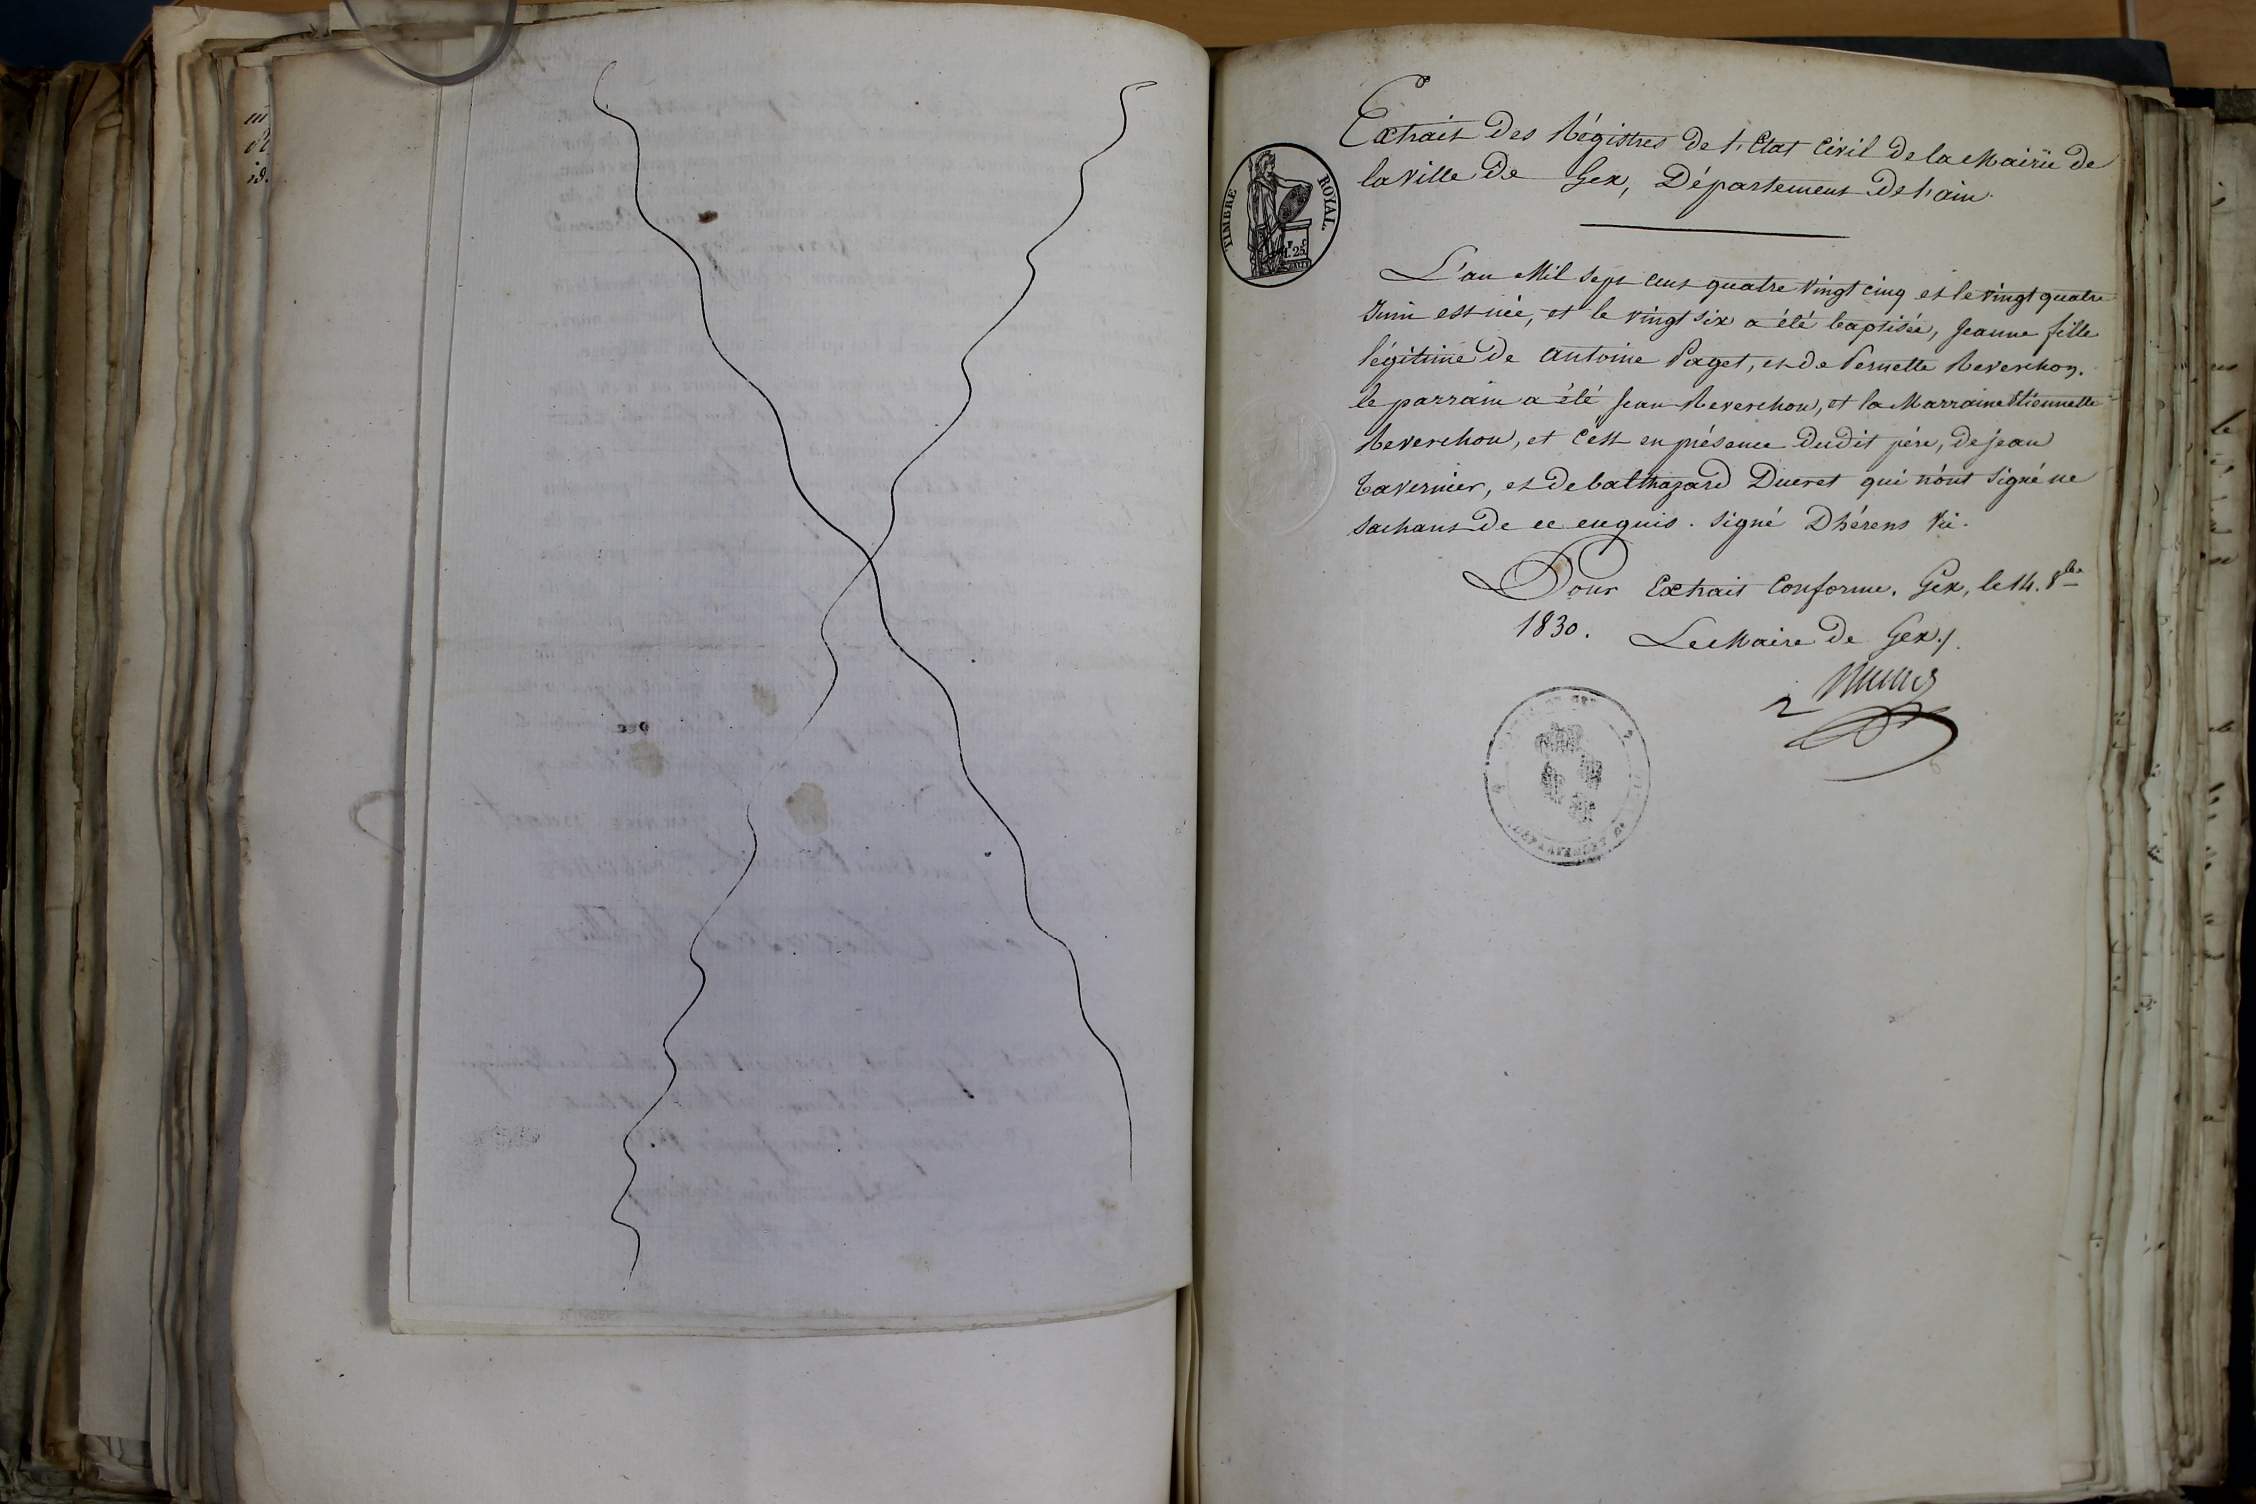 Extrait des Régistres de l'Etat Civil de la Mairie de
la Ville de Gex, Département de l'ain.
TIMBRE ROYAL
L'an Mil Sept cent quatre vingt cinq et le vingt quatre
Juin est née, et le vingt six a été baptisée, Jeanne fille
légitime de Antoine Paget, et de Pernette Reverchon.
le parrain a été Jean Reverchon, et la Marraine Etiennette
Reverchon, et c'est en présence dudit père, de jean
Tavernier, et de balthazard Ducret qui n'ont signé ne
sachant de ce enquis. Signé Dhérens Vic.
Pour Extrait Conforme. Gex, le 14. 8bre
1830. Le Maire de Gex./.